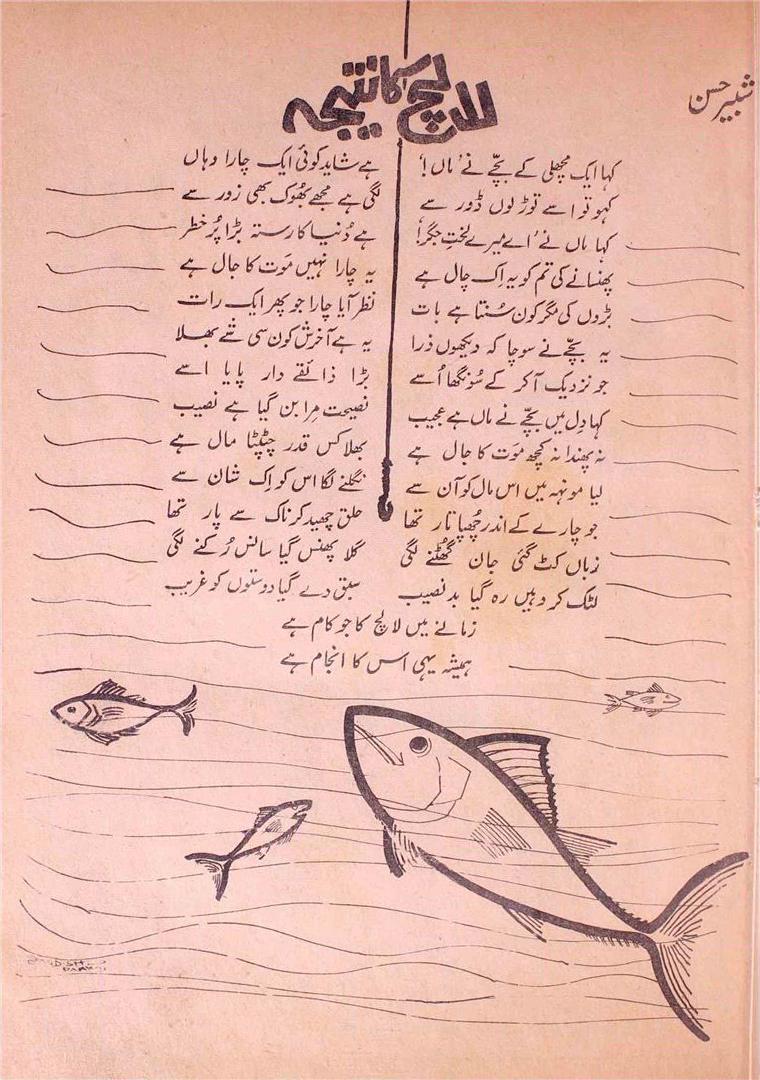 شبیر حسن
لالچ کا نتیجہ
کہا ایک مچھلی کے بچّے نے ’ماں!‘
ہے شاید کوئی ایک چارا وہاں
کہو تو اسے توڑ لوں ڈور سے
لگی ہے مجھے بھُوک بھی زور سے
کہا ماں نے ’اے میرے لختِ جگر!‘
ہے دُنیا کا رستہ بڑا پُر خطر
پھنسانے کی تم کو یہ اِک چال ہے
یہ چارا نہیں مَوت کا جال ہے
بڑوں کی مگر کون سُنتا ہے بات
نظر آیا چارا جو پھر ایک رات
یہ بچّے نے سوچا کہ دیکھوں ذرا
یہ ہے آخرش کون سی شے بھلا
جو نزدیک آ کر کے سُونگھا اُسے
بڑا ذائقے دار پایا اسے
کہا دِل میں بچّے نے ماں ہے عجیب
نصیحت مِرا بن گیا ہے نصیب
نہ پھندا نہ کچھ مَوت کا جال ہے
بھلا کس قدر چٹپٹا مال ہے
لیا مونہہ میں اس مال کو آن سے
نگلنے لگا اس کو اِک شان سے
جو چارے کے اندر چھُپا تار تھا
حلق چھید کر ناک سے پار تھا
زباں کٹ گئی جان گھُٹنے لگی
گلا پھنس گیا سانس رُکنے لگی
لٹک کر وہیں رہ گیا بد نصیب
سبق دے گیا دوستوں کو غریب
زمانے میں لالچ کا جو کام ہے
ہمیشہ یہی اس کا انجام ہے